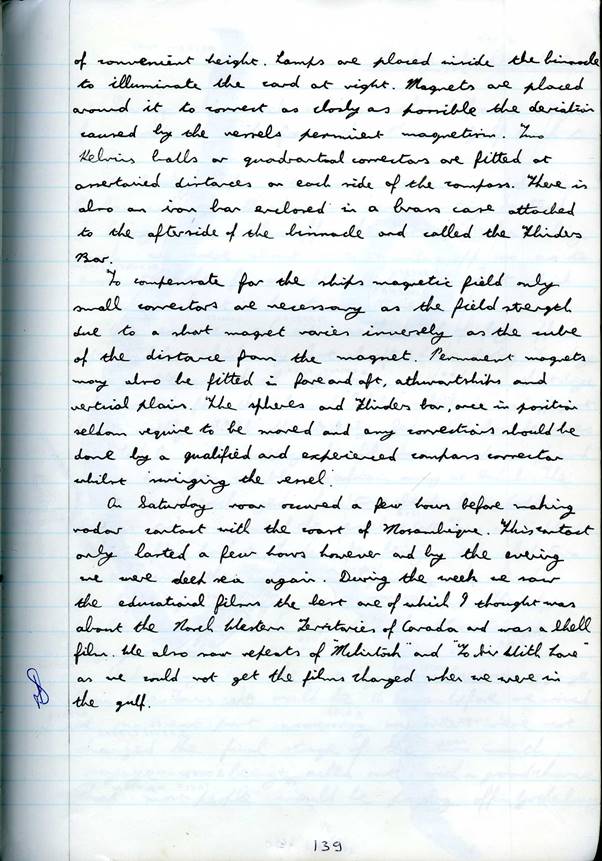 of convenient height. Lamps are placed inside the binnacle
to illuminate the card at night. Magnets are placed
around it to correct as closely as possible the deviation
caused by the vessels permient magnetism. Two
Kelvins balls or quadrantal correctors are fitted at
assertained distances on each side of the compass. There is
also an iron bar enclosed in a brass case attached
to the afterside of the binnacle and called the Flinders
Bar.
To compensate for the ships magnetic field only
small correctors are necessary as the field strength
due to a short magnet varies inversely as the cube
of the distance from the magnet. Permanent magnets
may also be fitted in fore and aft, athwartships and
vertical plains. The spheres and Flinders bar, once in position
seldom require to be moved and any corrections should be
done by a qualified and experienced compass corrector
whilst 'swinging the vessel'.
On Saturday noon occured a few hours before making
radar contact with the coast of Mosambique. This contact
only lasted a few hours however and by the evening
we were deep sea again. During the week we saw
the educational films the best one of which I thought was
about the North Western Territories of Canada and was a Shell
film. We also saw repeats of "McKintosh" and "To Sir With Love"
as we could not get the films changed when we were in
the gulf.
139